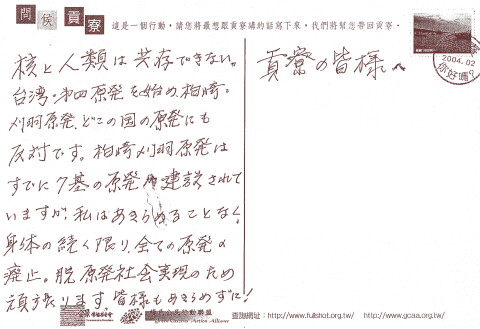 問候貢寮
這是一個行動，請您將最想跟貢寮講的話寫下來，我們將幫您帶回貢寮。
2004.02
你好嗎?
貢寮の皆様へ
核と人類は共存できない。
台湾・第四原発を始め、柏崎・
刈羽原発、どこの国の原発にも
反対です。柏崎刈羽原発は
すでに7基の原発が建設されて
いますが、私はあきらめることなく、
身体の続く限り、全ての原発の
廃止。脱原発社会実現のため
頑張ります。皆様もあきらめずに!
綠色公民行動聯盟
Green Citizen Action Alliance
查詢網址：http://www.fullshot.org.tw/ http://www.gcaa.org.tw/